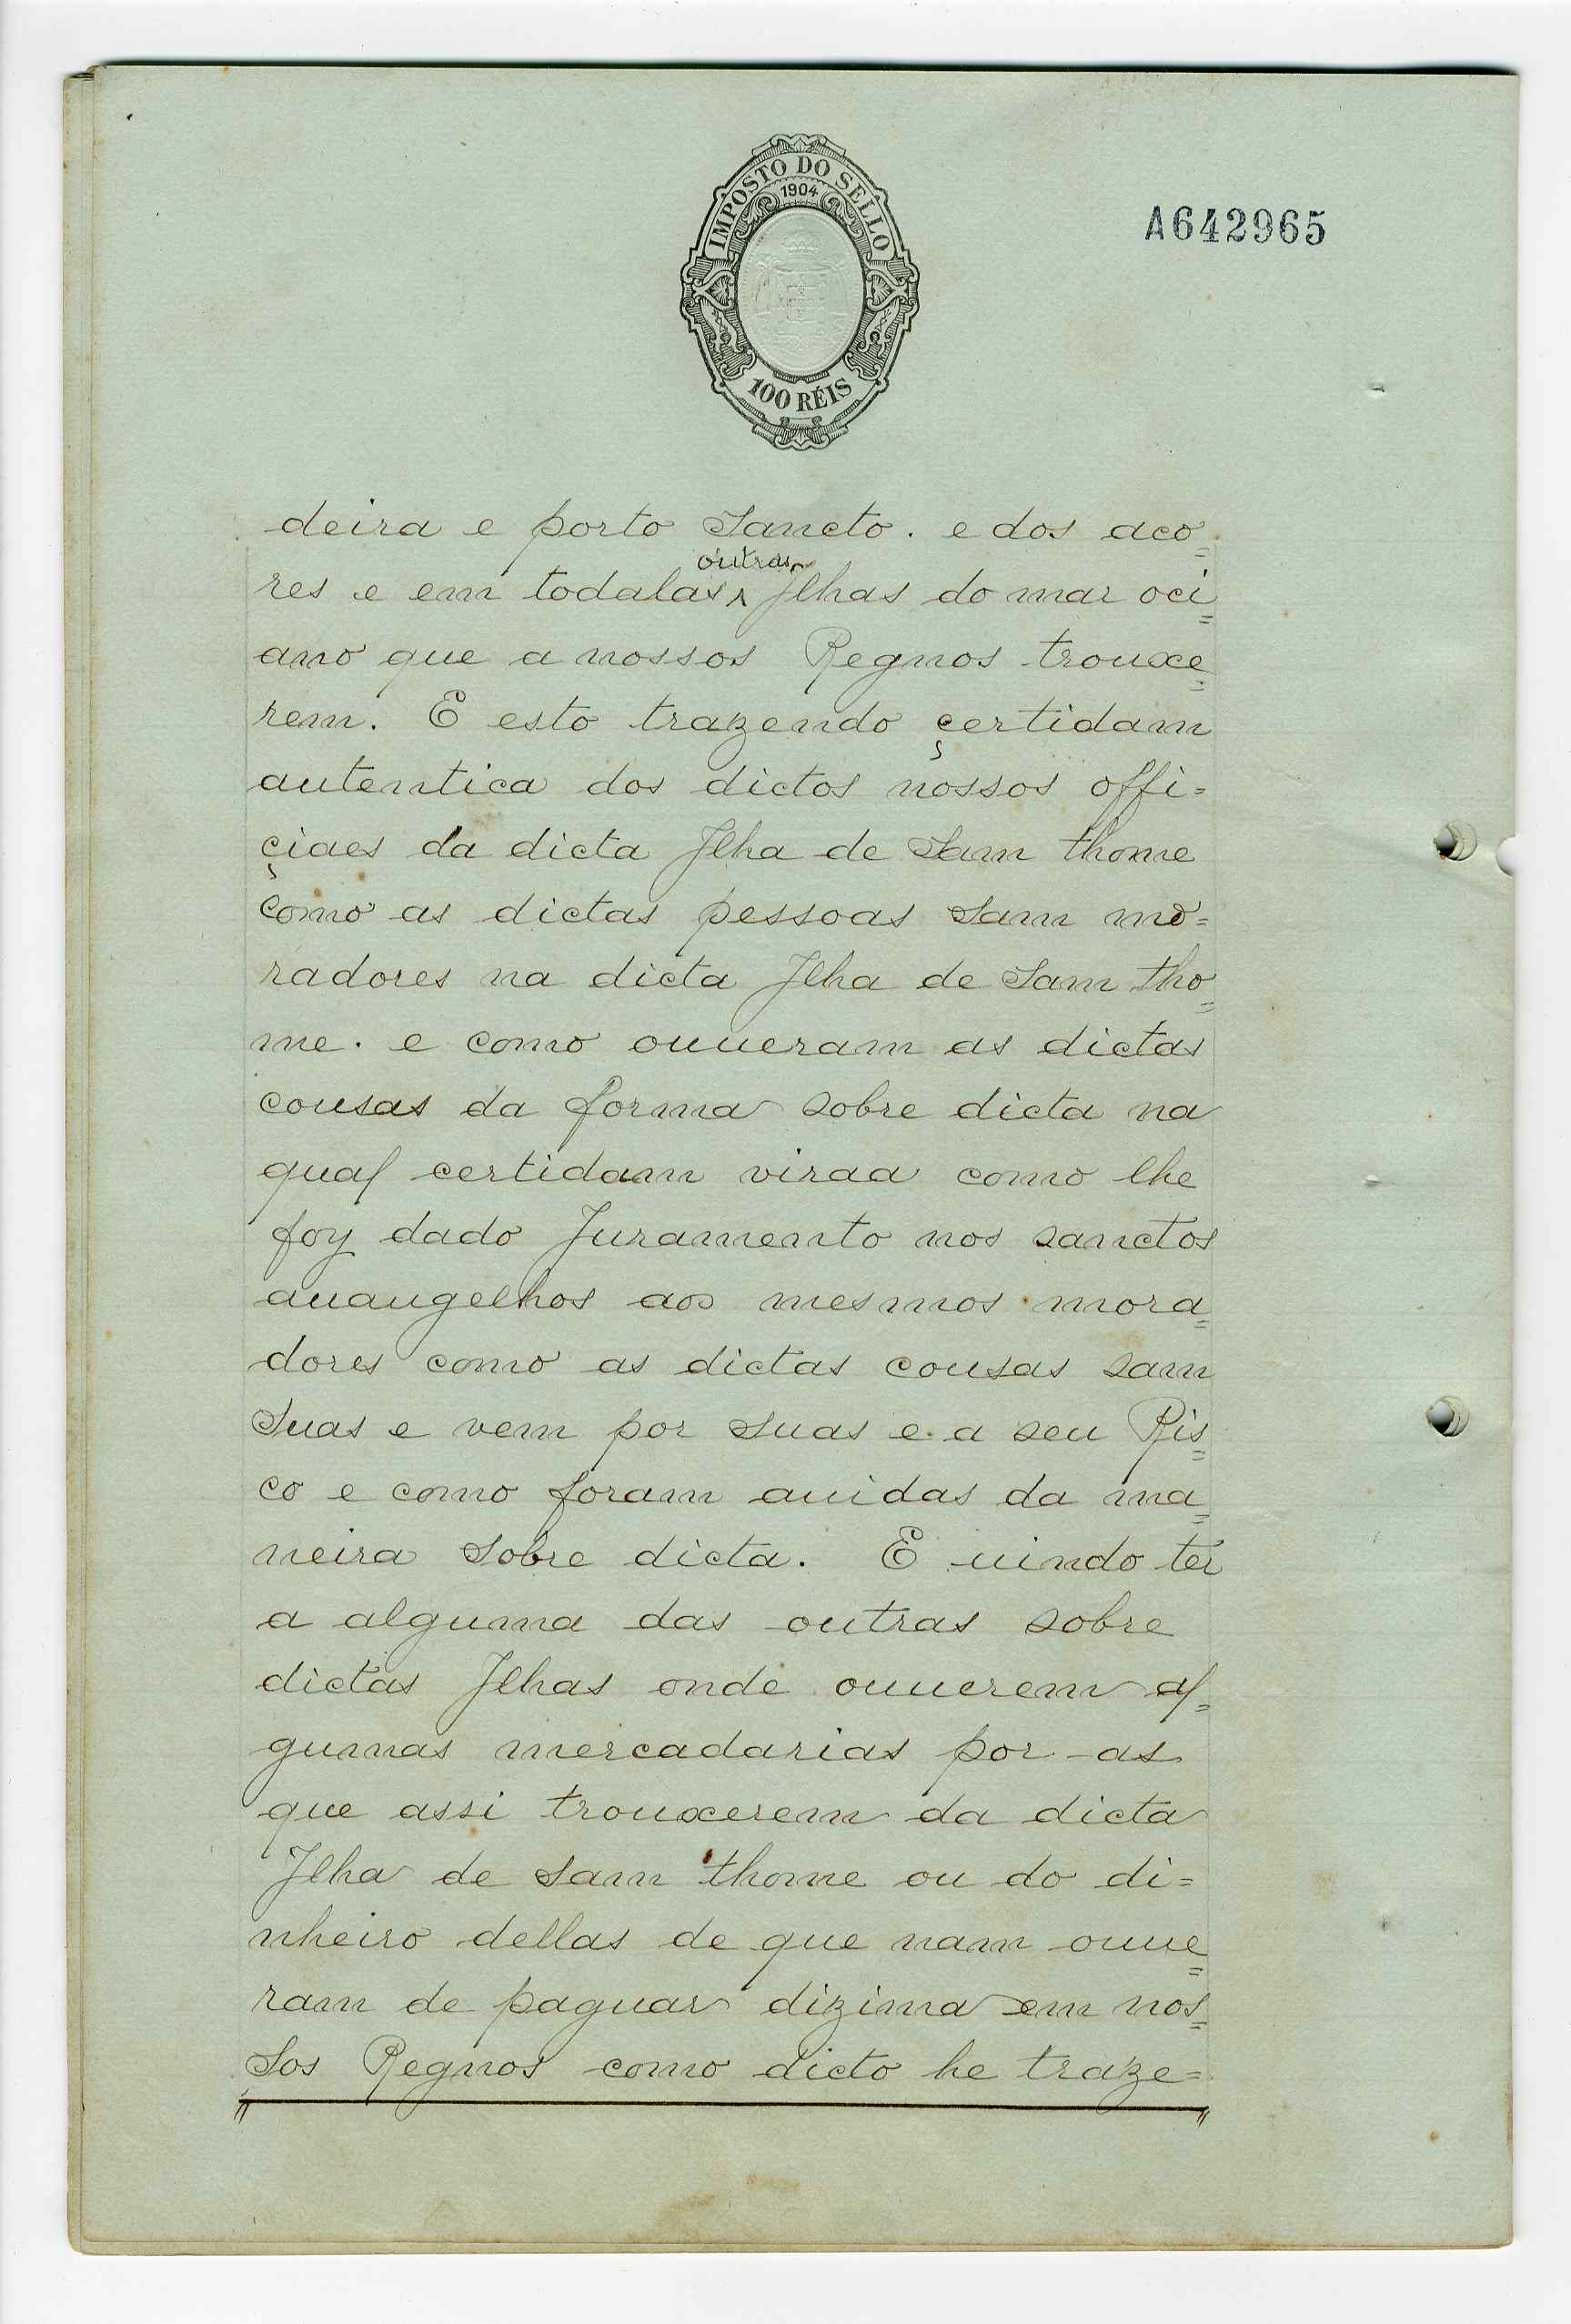 IMPOSTO DO SELLO
1904
100 RÉIS
A642965
deira e porto Sancto. e dos aco=
outras
res e em todalas Jlhas do mar oci=
ano que a nossos Regnos trouxe=
rem. E esto trazendo çertidam
autentica dos dictos nossos offi=
çiaes da dicta Jlha de Sam thome
como as dictas pessoas Sam mo=
radores na dicta Jlha de Sam tho=
me. e como ouueram as dictas
cousas da forma sobre dicta na
qual certidam viraa como lhe
foy dado Juramento nos sanctos
auangelhos aos mesmos mora=
dores como as dictas cousas sam
Suas e vem por Suas e a seu Ris=
co e como foram auidas da ma=
neira Sobre dicta. E uindo ter
a alguma das outras sobre
dictas Jlhas onde ouuerem al=
gumas mercadarias por as
que assi trouxerem da dicta
Jlha de Sam thome ou do di=
nheiro dellas de que nam ouue=
ram de paguar dizima em nos=
Sos Regnos como dicto he traze=